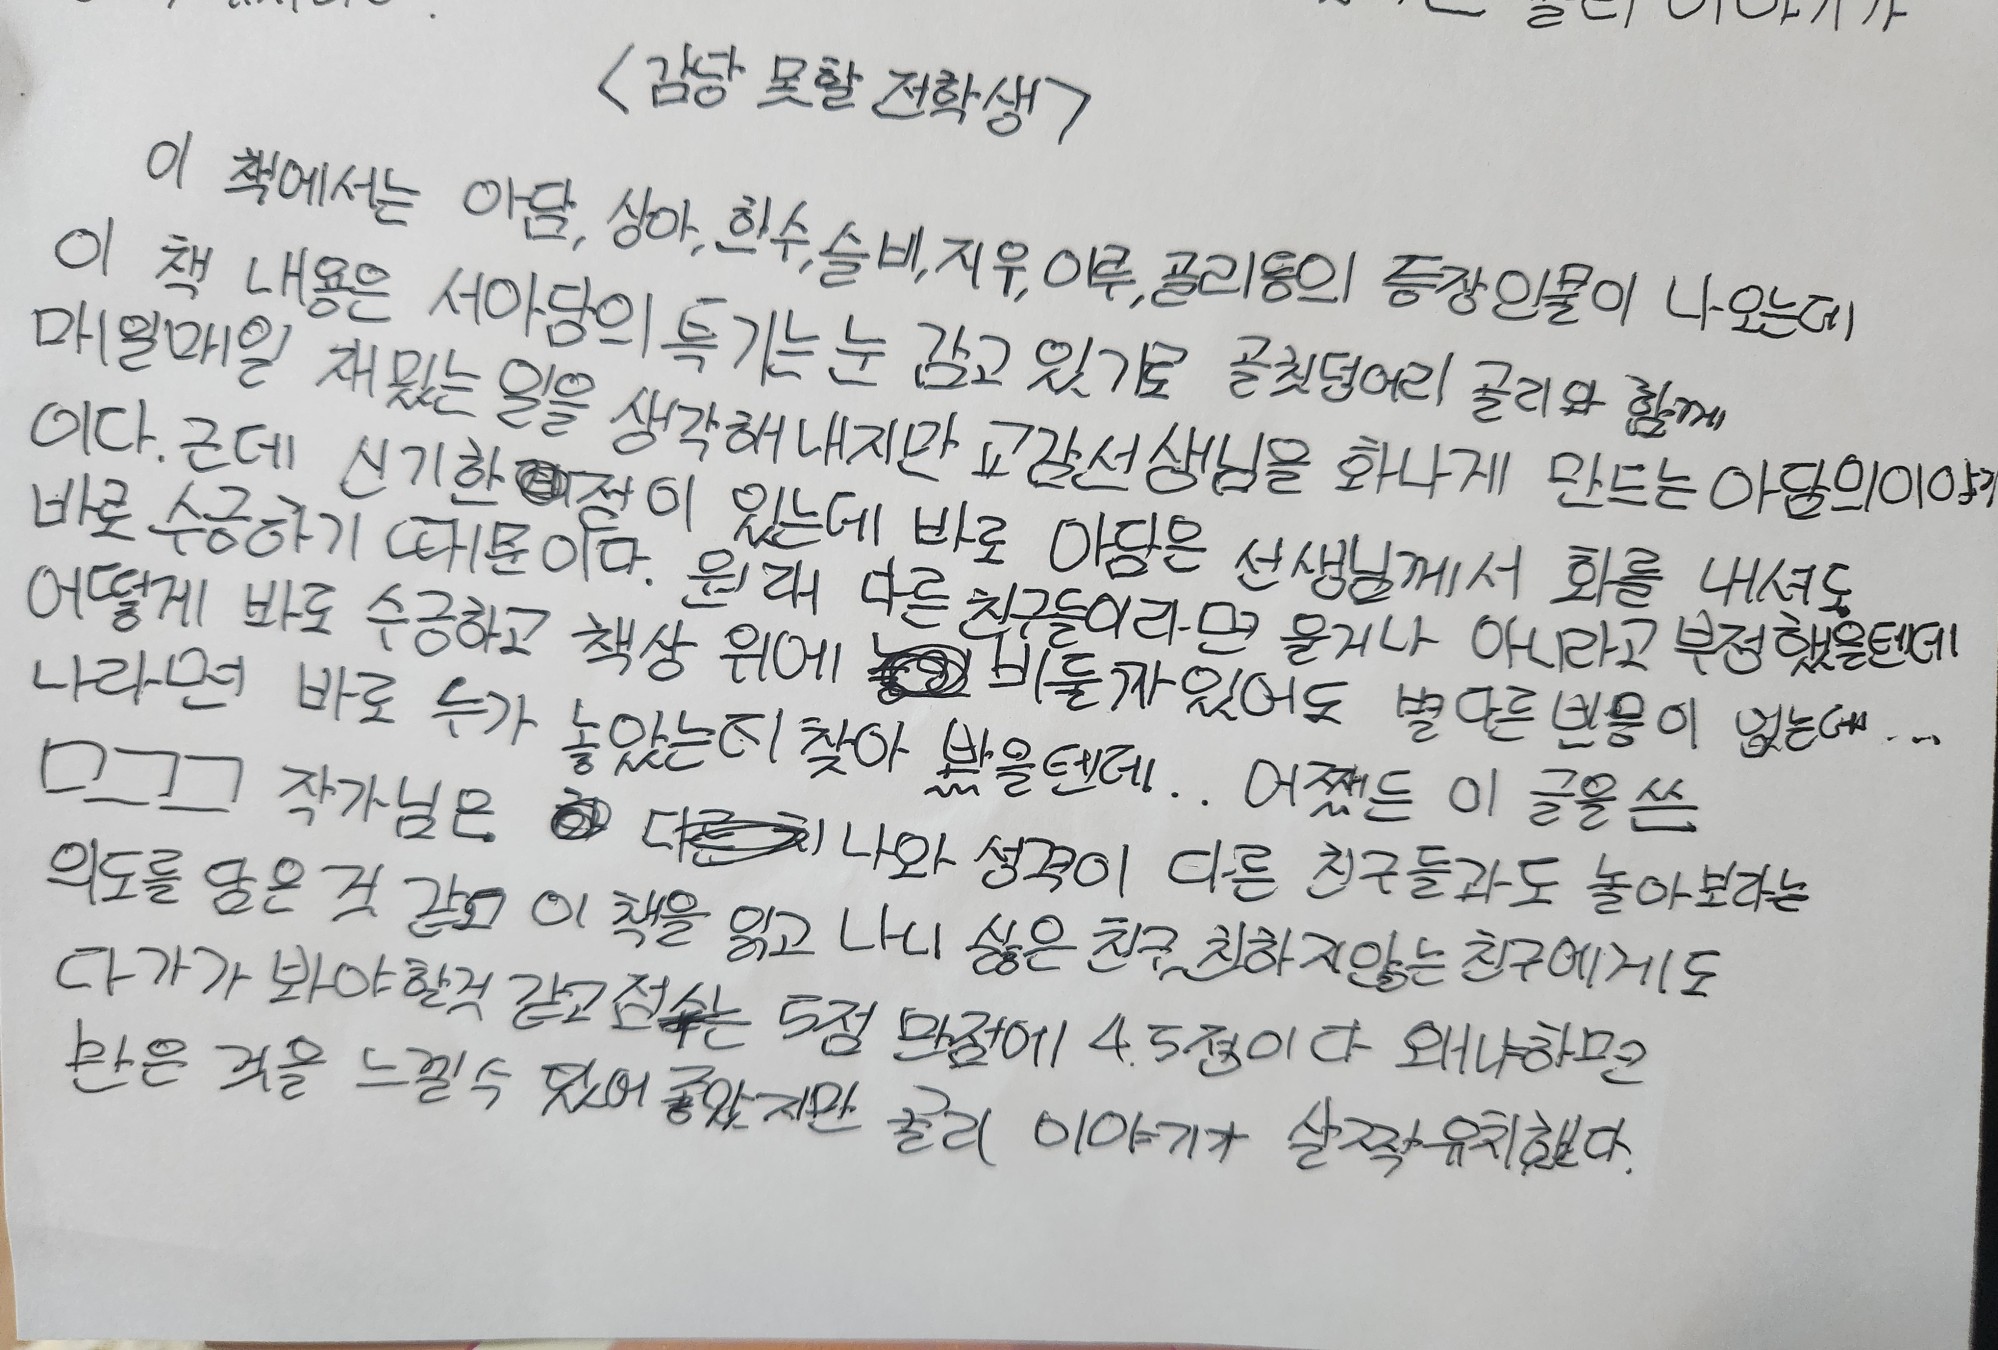 이야기가
<감당 못할 전학생>
이 책에서는 아담, 상아, 희수, 슬비, 지우, 이루, 골리 등의 등장인물이 나오는데
이 책 내용은 서아담의 특기는 눈 감고 있기로 골칫덩어리 골리와 함께
매일매일 재밌는 일을 생각해내지만 교감선생님을 화나게 만드는 아담의이야기
이다. 근데 신기한 점이 있는데 바로 아담은 선생님께서 화를 내셔도
바로 수긍하기 때문이다. 원래 다른 친구들이라면 울거나 아니라고 부정했을텐데
어떻게 바로 수긍하고 책상 위에 비둘기가있어도 별다른 반응이 없는데...
나라면 바로 누가 놓았는지 찾아 봤을텐데... 어쨌든 이 글을 쓴
작가님은 나와 성격이 다른 친구들과도 놀아보라는
의도를 담은 것 같고 이 책을 읽고 나니 싫은 친구, 친하지않는 친구에게도
다가가 봐야할것 같고 점수는 5점 만점에 4.5점이다 왜냐하면
많은 것을 느낄수 있어 좋았지만 골리 이야기가 살짝 유치했다.